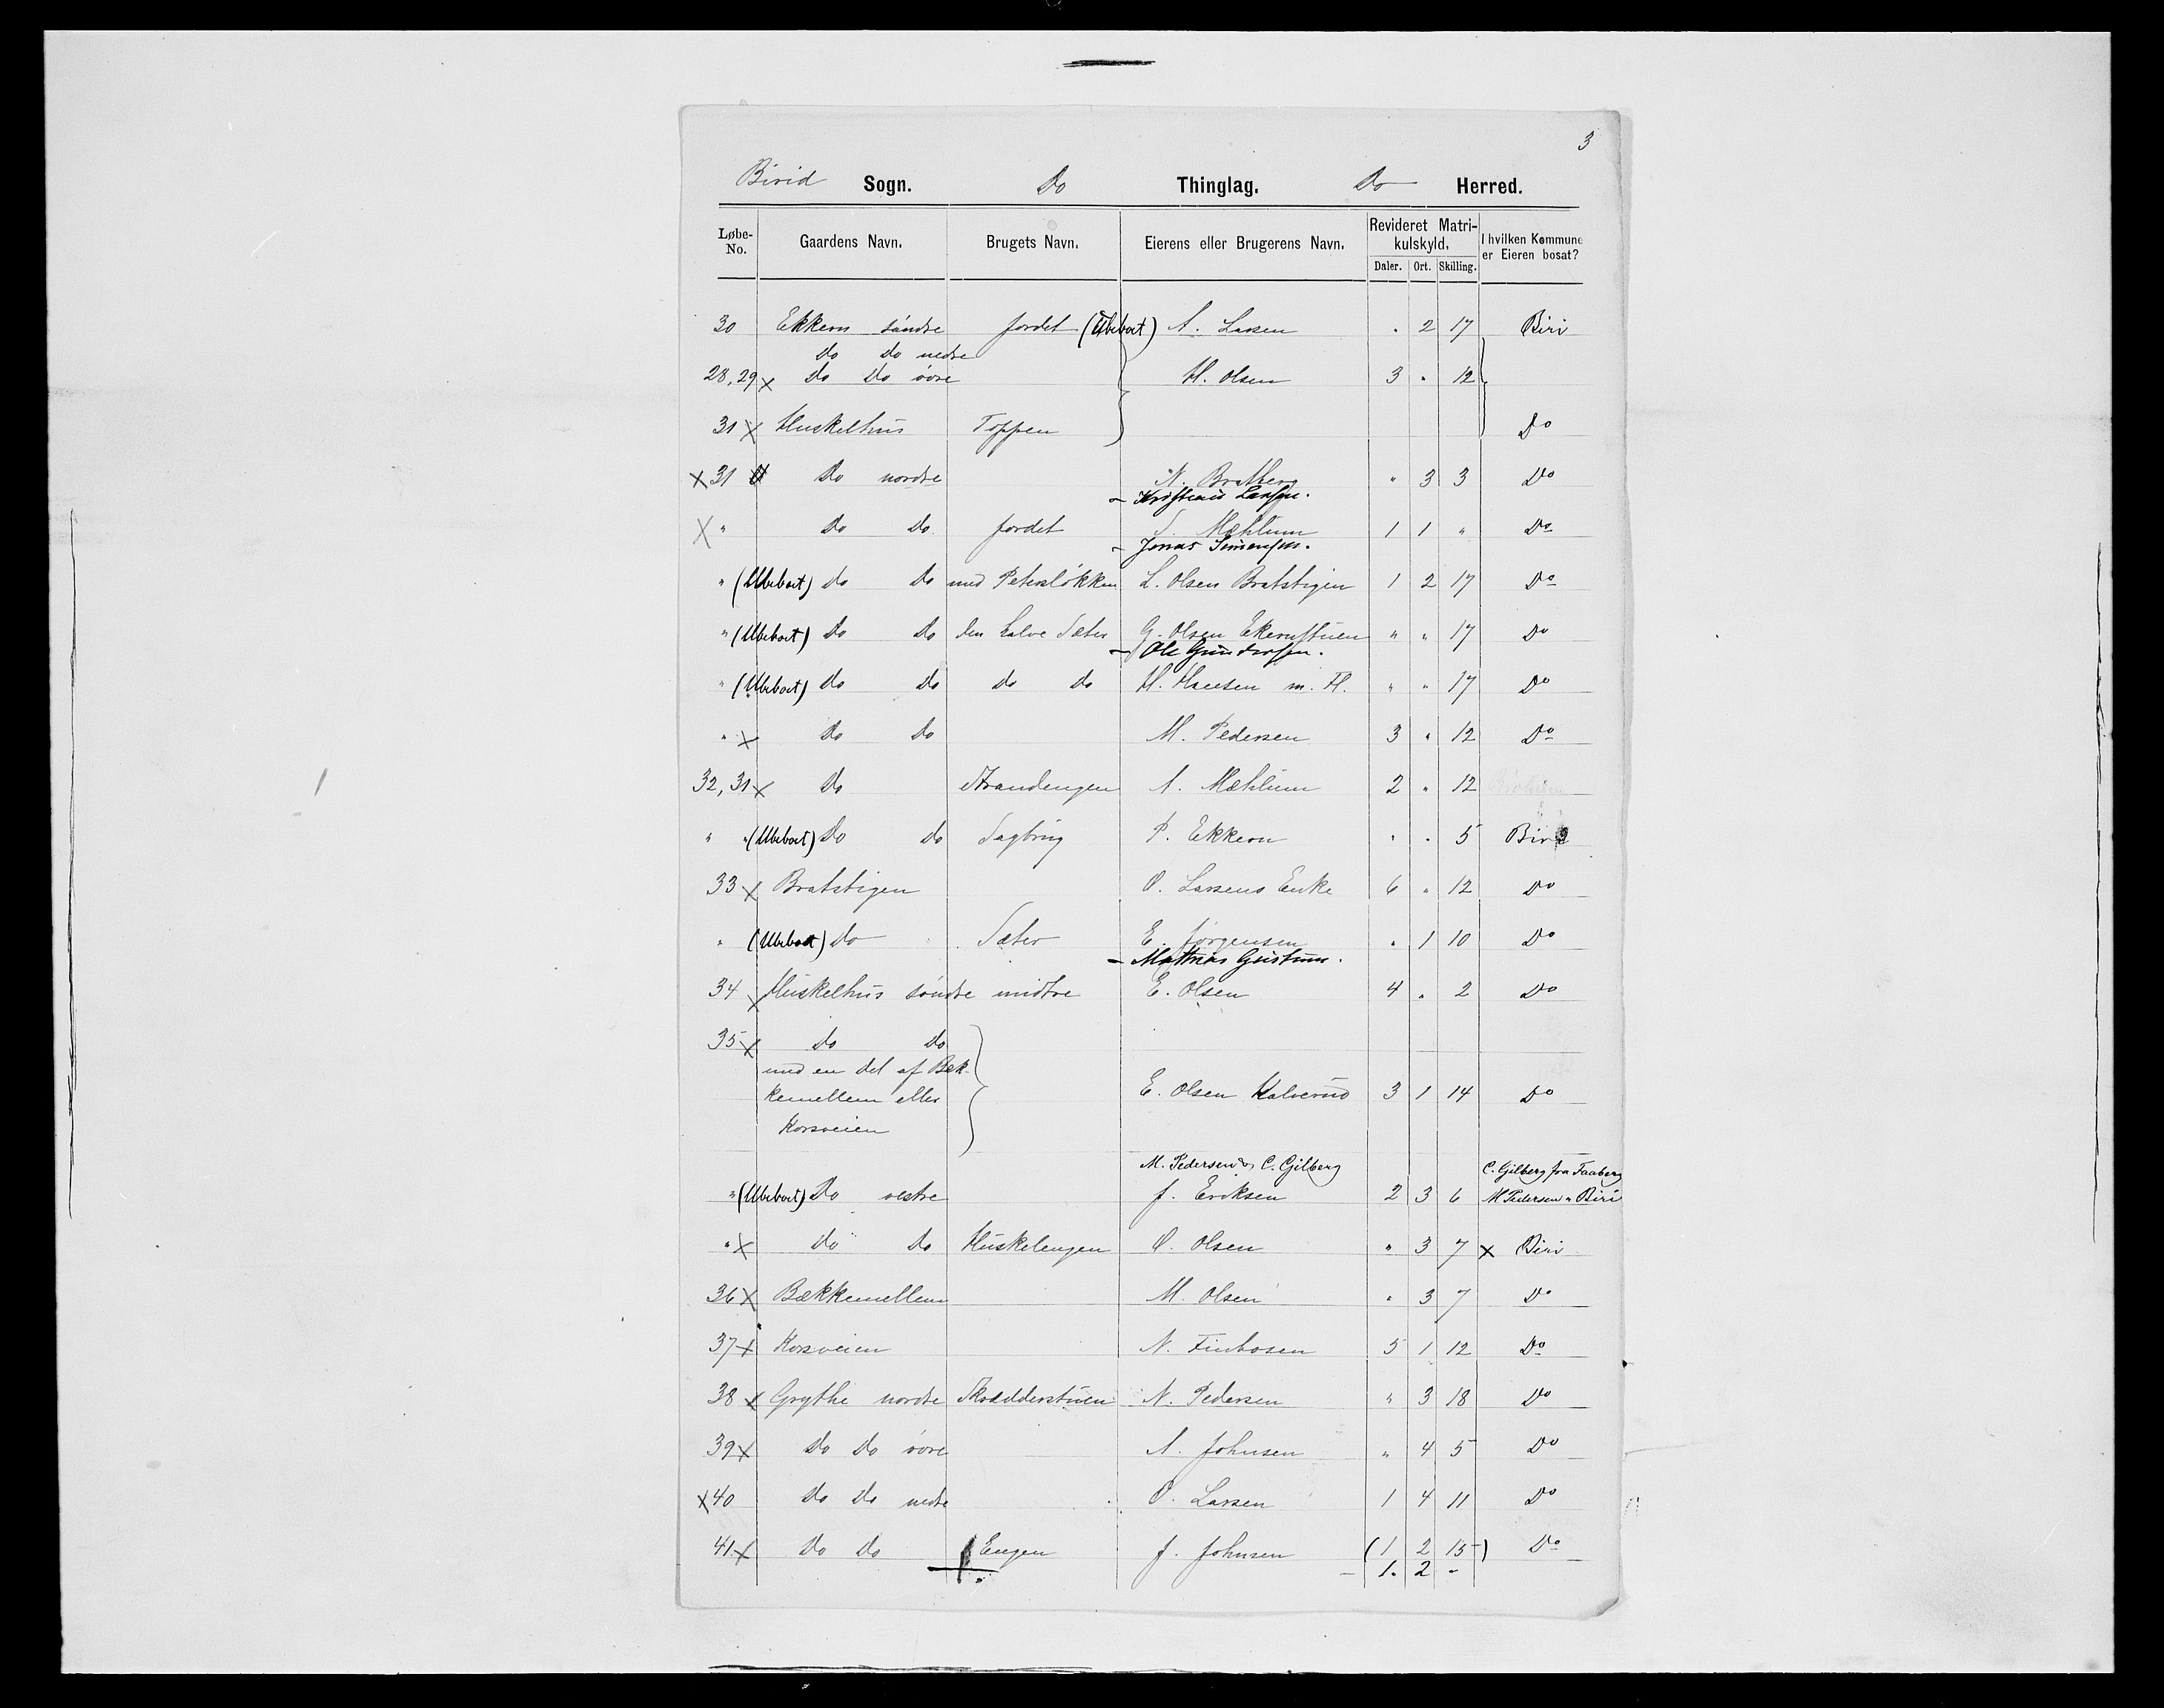 3
Birid Sogn. Do Thinglag. Do Herred.
Løbe-No. Gaardens Navn. Brugets Navn. Eierens eller Brugerens Navn. Revideret Matrikulskyld. I hvilken Kommune er Eieren bosat?
Daler. Ort. Skilling.
30 Ekkern søndre jordet (Ubeboet) A. Larsen " 2 17 Biri
do do nedre
28, 29 x do do øvre H. Olsen 3 " 12
31 x Huskelhus Toppen Do
x 31 do nordre N. Bratberg " 3 3 Do
– Kristians Larsen.
x " do do jordet S. Mæhlum 1 1 " Do
– Jonas Simensen.
" (Ubeboet) do do med Petersløkken L. Olsen Bratstigen 1 2 17 Do
" (Ubeboet) do do den halve Sæter G. Olsen Ekernstuen " " 17 Do
– Ole Gundersen.
" (Ubeboet) do do do do H. Hansen m. Fl. " " 17 Do
" x do do M. Pedersen 3 " 12 Do
32, 31 x do Strandengen A. Mæhlum 2 " 12
" " (Ubeboet) do do Sagbrug P. Ekkern " " 5 Biri
33 x Bratstigen O. Larsens Enke 6 " 12 Do
" (Ubeboet) do Sæter E. Jørgensen " 1 10 Do
– Mathias
34 x Huskelhus søndre midtre E. Olsen 4 " 2 Do
35 x do do
med en del af Bæk-
kemellem eller E. Olsen Kalverud 3 1 14 Do
Korsveien
M. Pedersen & C. Gjilberg C. Gilberg fra Faaberg
" (Ubeboet) Do vestre J. Eriksen 2 3 6 M Pedersen " Biri
" x do do Huskelengen O. Olsen " 3 7 x Biri
36 x Bækkemellem M. Olsen " 3 7 Do
37 x Korsveien N. Finbosen 5 1 12 Do
38 x Grythe nordre Skrædderstuen N. Pedersen " 3 18 Do
39 x do do øvre A. Johnsen " 4 5 Do
x 40 do do nedre O. Larsen 1 4 11 Do
41 x do do Engen J. Johnsen (1 2 15) Do
– 1. 2 -